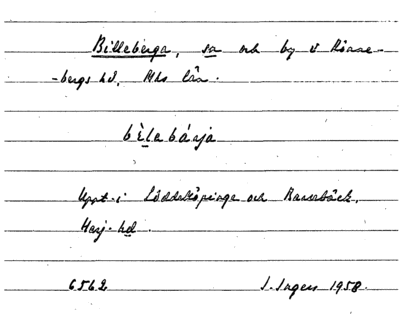 Billeberga, sn och by i Rönne-
bergs hd, Mhs län.
bìlabárja
Uppt. i Löddeköpinge och Barsebäck,
Harj. hd.
6562 J. Ingers 1958.